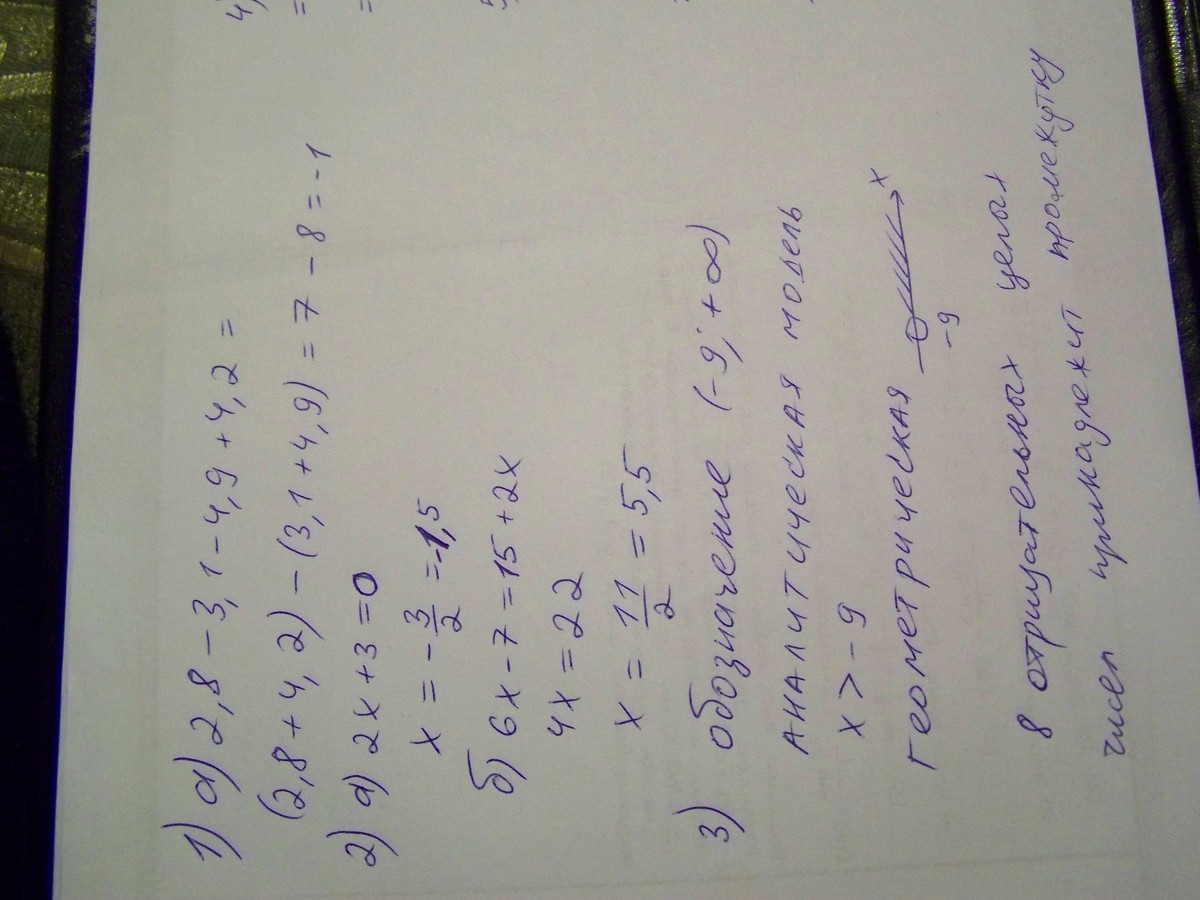 1) а) 2,8 - 3,1 - 4,9 + 4,2 =
(2,8 + 4,2) - (3,1 + 4,9) = 7 - 8 = -1
2) а) 2x + 3 = 0
x = -3/2 = -1,5
б) 6x - 7 = 15 + 2x
4x = 22
x = 11/2 = 5,5
3) обозначение (-9; +∞)
аналитическая модель
x > -9
геометрическая
-9 x
8 отрицательных целых
чисел принадлежит промежутку
4)
=
=